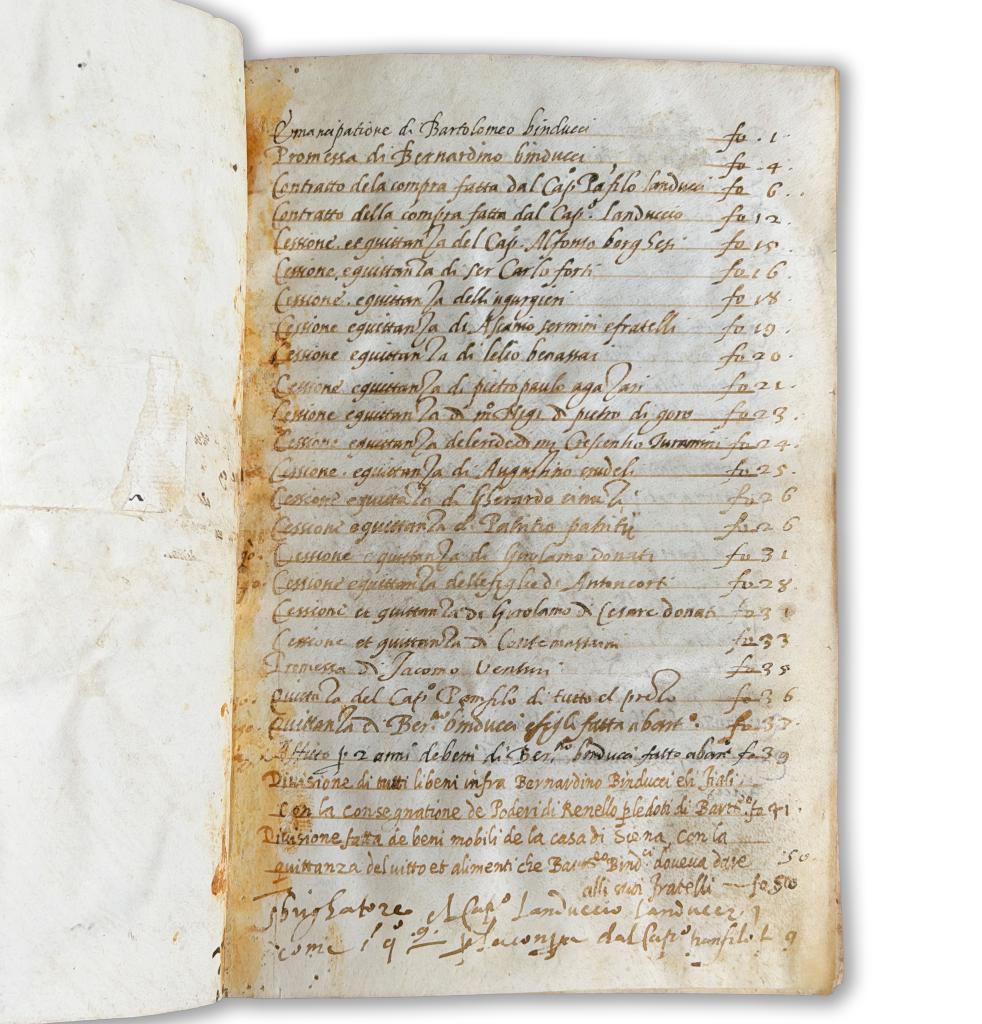 Emancipatione di Bartolomeo binducci fo. 1.
Promessa di Bernardino binducci fo. 4.
Contratto dela compra fatta dal Capº Pafilo landucci fo 6.
Contratto della compra fatta dal Capº landuccio fo 12.
Cessione et quittanza del Cap. Alfonso borghesi fo 15.
Cessione equittanza di ser Carlo forti fo 16
Cessione equittanza delli ugurgieri fo 18.
Cessione equittanza di Ascanio sermini efratelli fo 19.
Cessione equittanza di lelio benassai fo 20.
Cessione equittanza di pietropaulo agazari fo 21.
Cessione equittanza di mº pietro di goro fo 23.
Cessione equittanza fo 24.
Cessione equittanza di Augustino fo 25.
Cessione equittanza di Gherardo fo 26
Cessione equittanza di Patritio patritij fo 26
Cessione equittanza di Girolamo donati fo 31
Cessione equittanza dellefiglie di Antoncorti fo 28
Cessione et quittanza di Girolamo di Cesare donati fo 31
Cessione et quittanza di fo 33
Promessa di Jacomo Venturi fo 35
Quittanza del Capº Pamfilo di tutto el fo 36
Quittanza di Ber.no binducci efigli fatta abartº. fo 37.
2 anni debeni di Ber.no binducci fatto abarº fo 39
Divisione di tutti libeni infra Bernardino Binducci eli figli
con la consegnatione de Poderi di Renello di Bartº. fo 41.
Divisione fatta de beni mobili de la casa di Siena, con la
quittanza del vitto et alimenti che Bind.ci doveva dare 50.
alli suoi fratelli — fo 50
el Capº Landuccio Landucci
come dal Capº 9